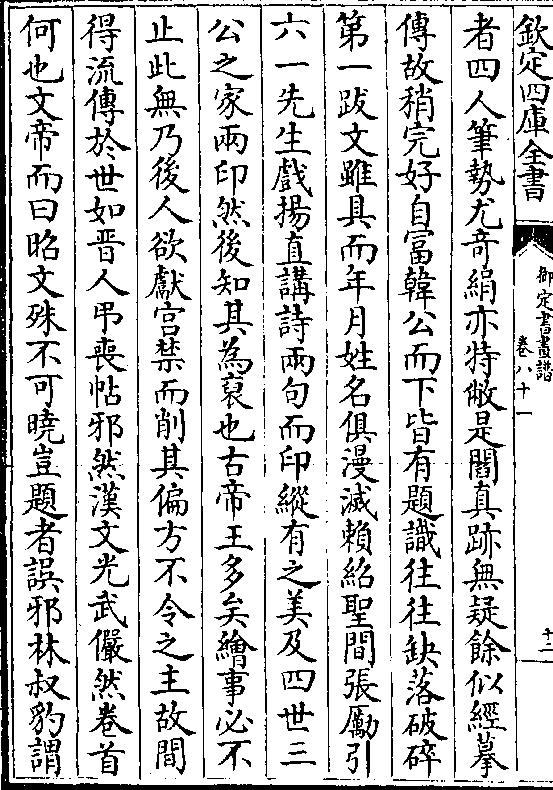 欽定四庫全書
御定書畫譜
卷八十一
十二
者四人筆勢尤竒絹亦特敝是閻真跡無疑餘似經摹
傳故稍完好自富韓公而下皆有題識往往缺落破碎
第一跋文雖具而年月姓名俱漫滅賴紹聖間張勵引
六一先生戲揚直講詩兩句而印縱有之美及四世三
公之家兩印然後知其為裒也古帝王多矣繪事必不
止此無乃後人欲獻宫禁而削其偏方不令之主故間
得流傳於世如晉人弔喪帖邪然漢文光武儼然卷首
何也文帝而曰昭文殊不可曉豈題者誤邪林叔豹謂